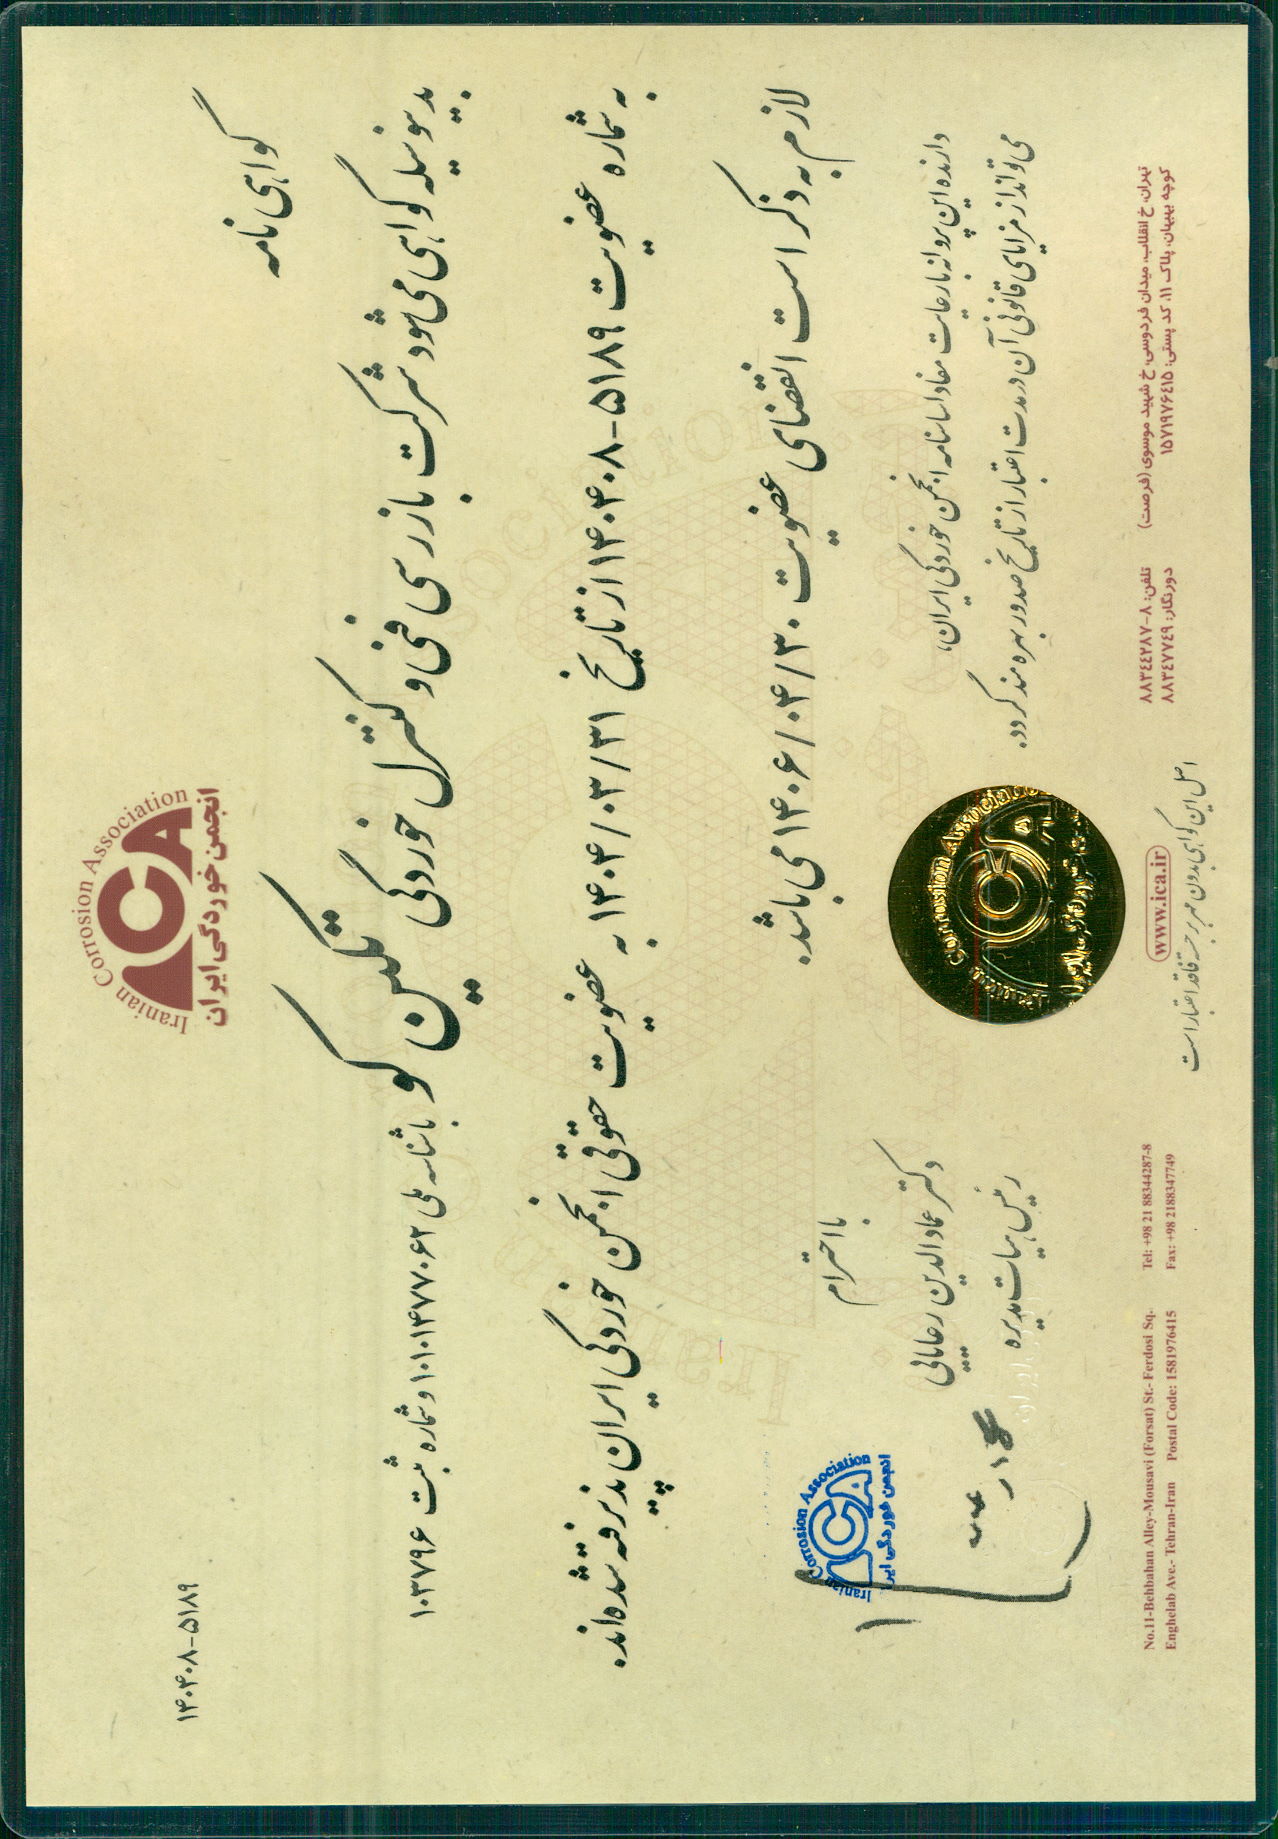 Iranian Corrosion Association
ICA
انجمن خوردگی ایران
۱۴۰۴۰۸-۵۱۸۹
گواهی نامه
بدینوسیله گواهی می شود شرکت بازرسی فنی و کنترل خوردگی تکین کو با شناسه ملی ۱۰۱۰۱۴۷۷۰۶۲ و شماره ثبت ۱۰۳۷۹۶
به شماره عضویت ۱۴۰۴۰۸-۵۱۸۹ از تاریخ ۱۴۰۴/۰۳/۳۱ به عضویت حقوقی انجمن خوردگی ایران پذیرفته شده اند.
لازم به ذکر است انقضای عضویت ۱۴۰۶/۰۴/۳۰ می باشد.
با احترام
دارنده این پروانه با رعایت مفاد اساسنامه انجمن خوردگی ایران،
می تواند از مزایای قانونی آن در مدت اعتبار از تاریخ صدور بهره مند گردد.
دکتر عمادالدین رعایائی
رئیس هیات مدیره
Iranian Corrosion Association
ICA
انجمن خوردگی ایران
Iranian Corrosion Association
ICA
تهران، خ انقلاب، میدان فردوسی، خ شهید موسوی (فرصت)
کوچه بهبهان، پلاک ۱۱، کد پستی: ۱۵۷۱۹۷۶۴۱۵
تلفن: ۸-۸۸۳۴۴۲۸۷
دورنگار: ۸۸۳۴۷۷۴۹
www.ica.ir
Tel: +98 21 88344287-8
Fax: +98 2188347749
No.11-Behbahan Alley-Mousavi (Forsat) St.- Ferdosi Sq.
Enghelab Ave.- Tehran-Iran Postal Code: 1581976415
اصل این گواهی بدون مهر برجسته فاقد اعتبار است